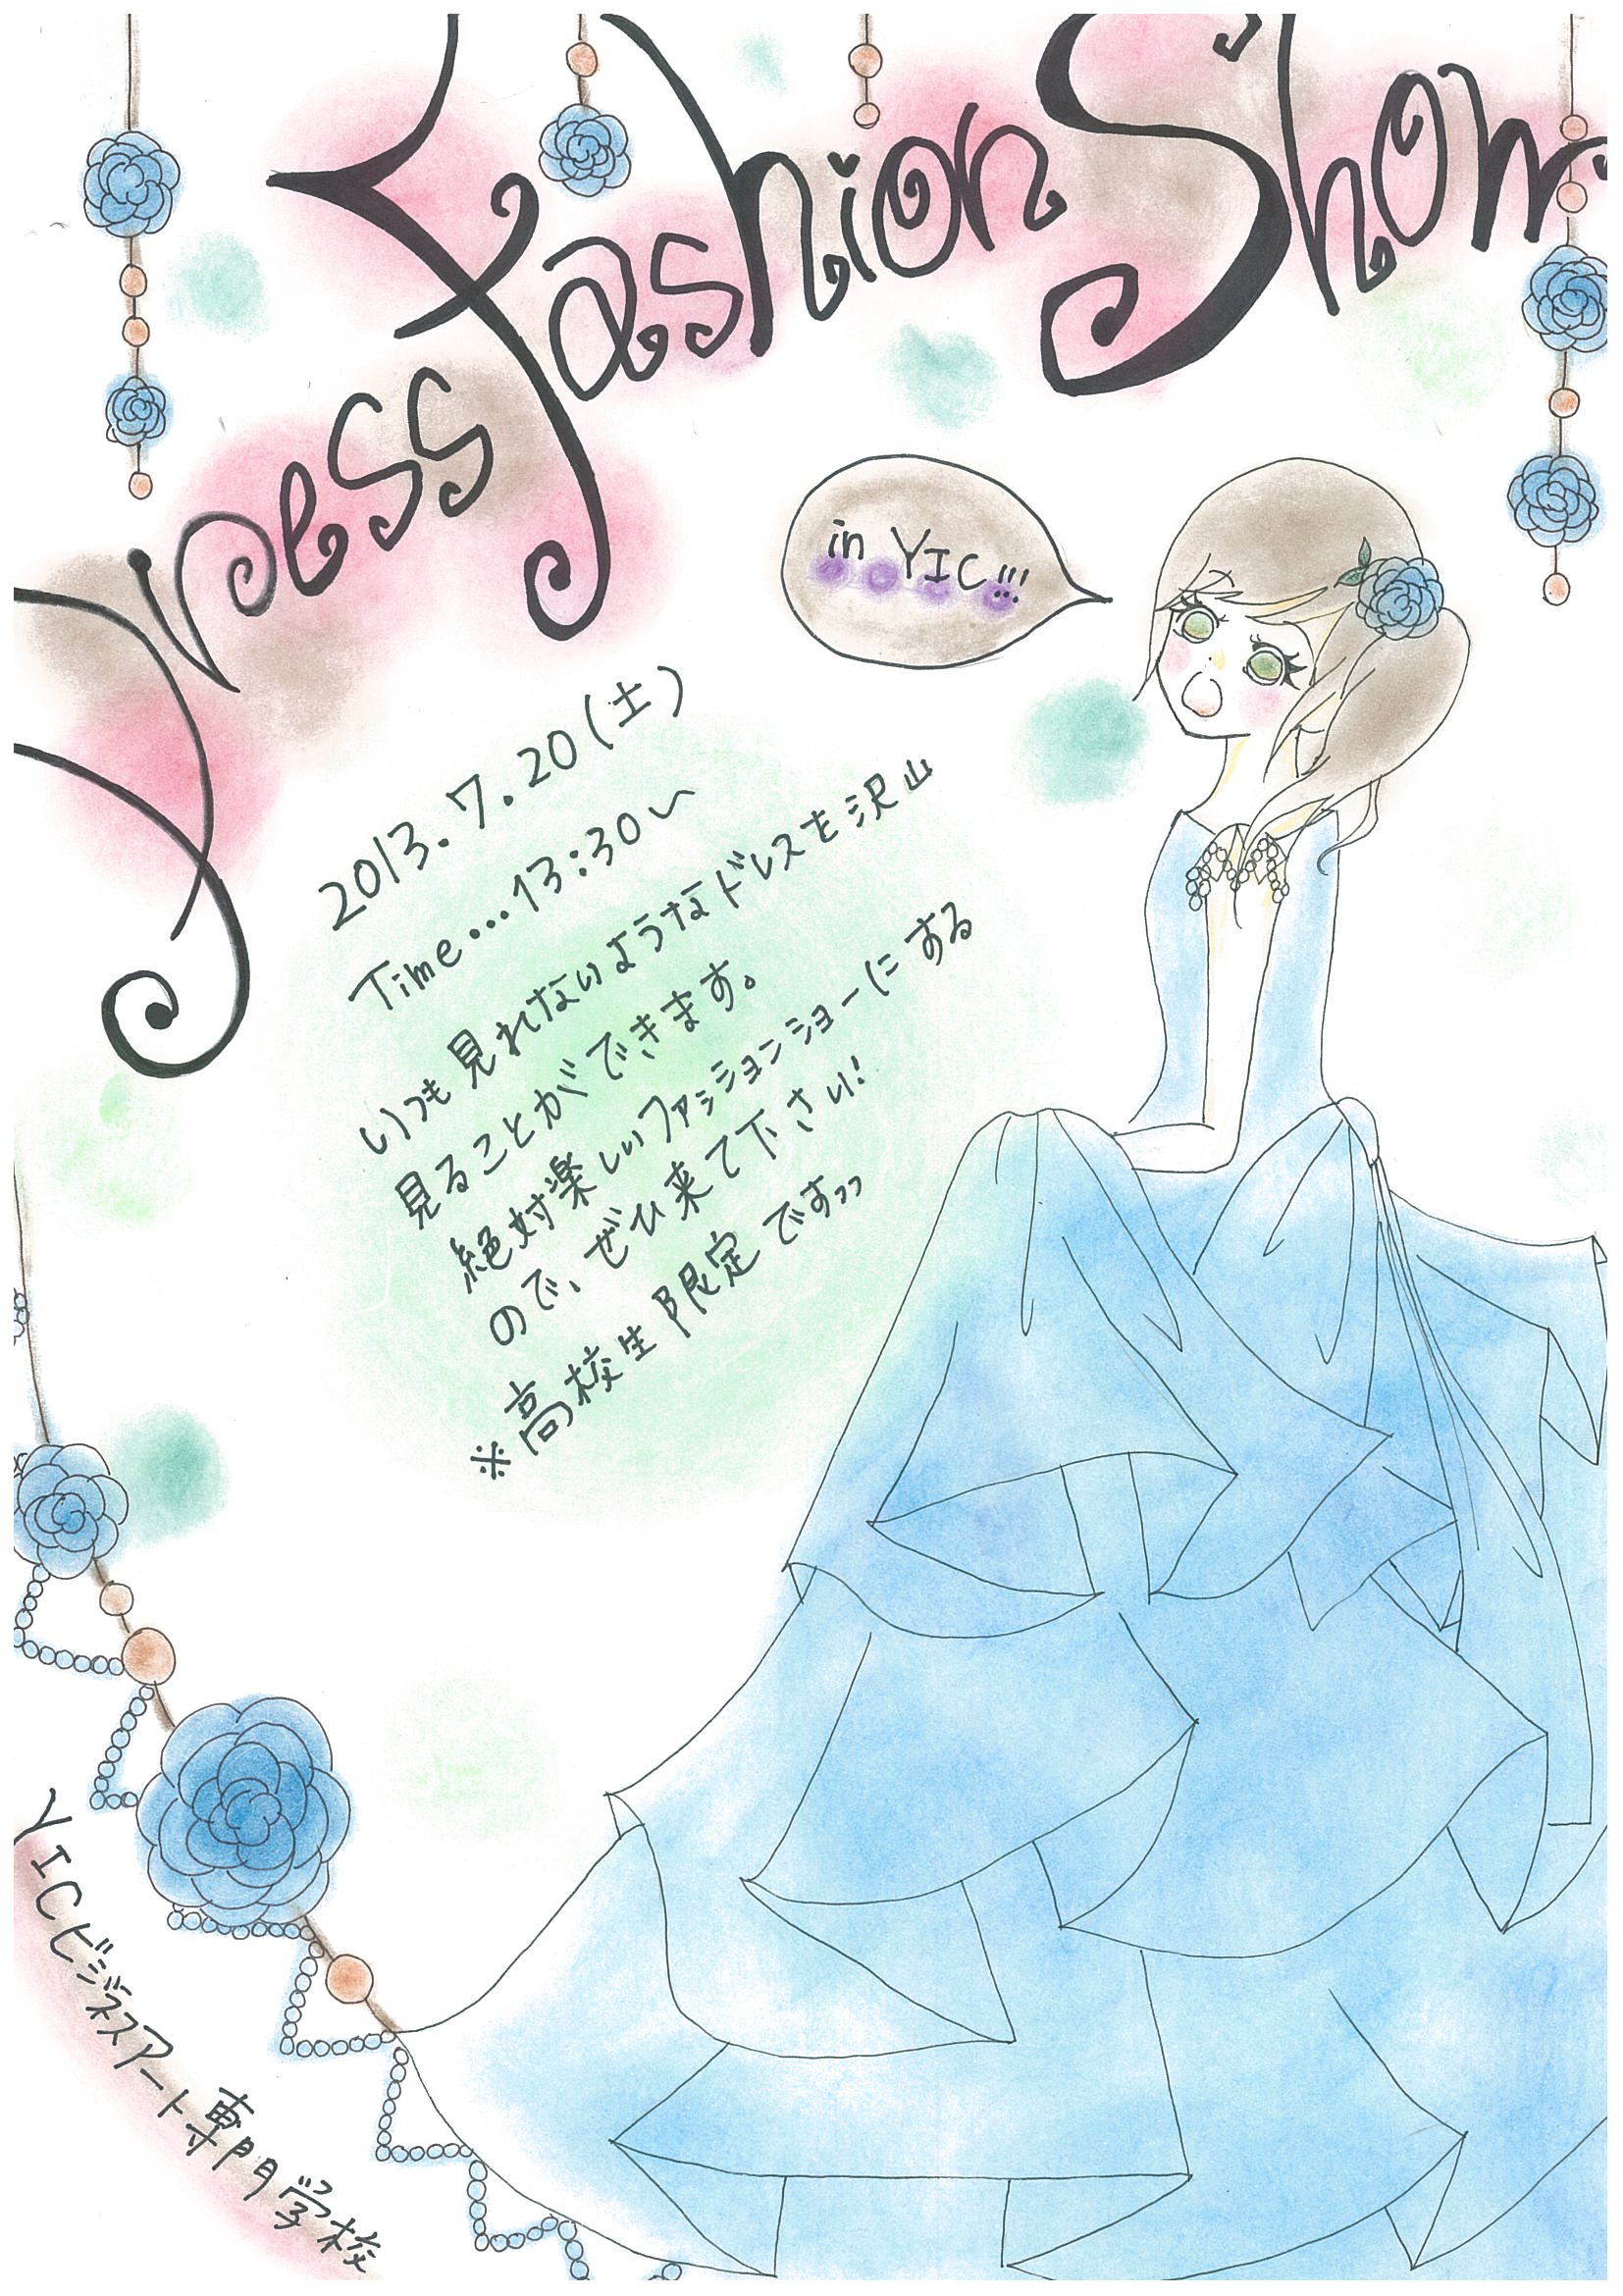 Dress Fashion Show
in YIC!!!
2013.7.20(土)
Time...13:30〜
いつも見れないようなドレスを沢山
見ることができます。
絶対楽しいファッションショーにする
ので、ぜひ来て下さい!
※高校生限定です››
YICビジネスアート専門学校